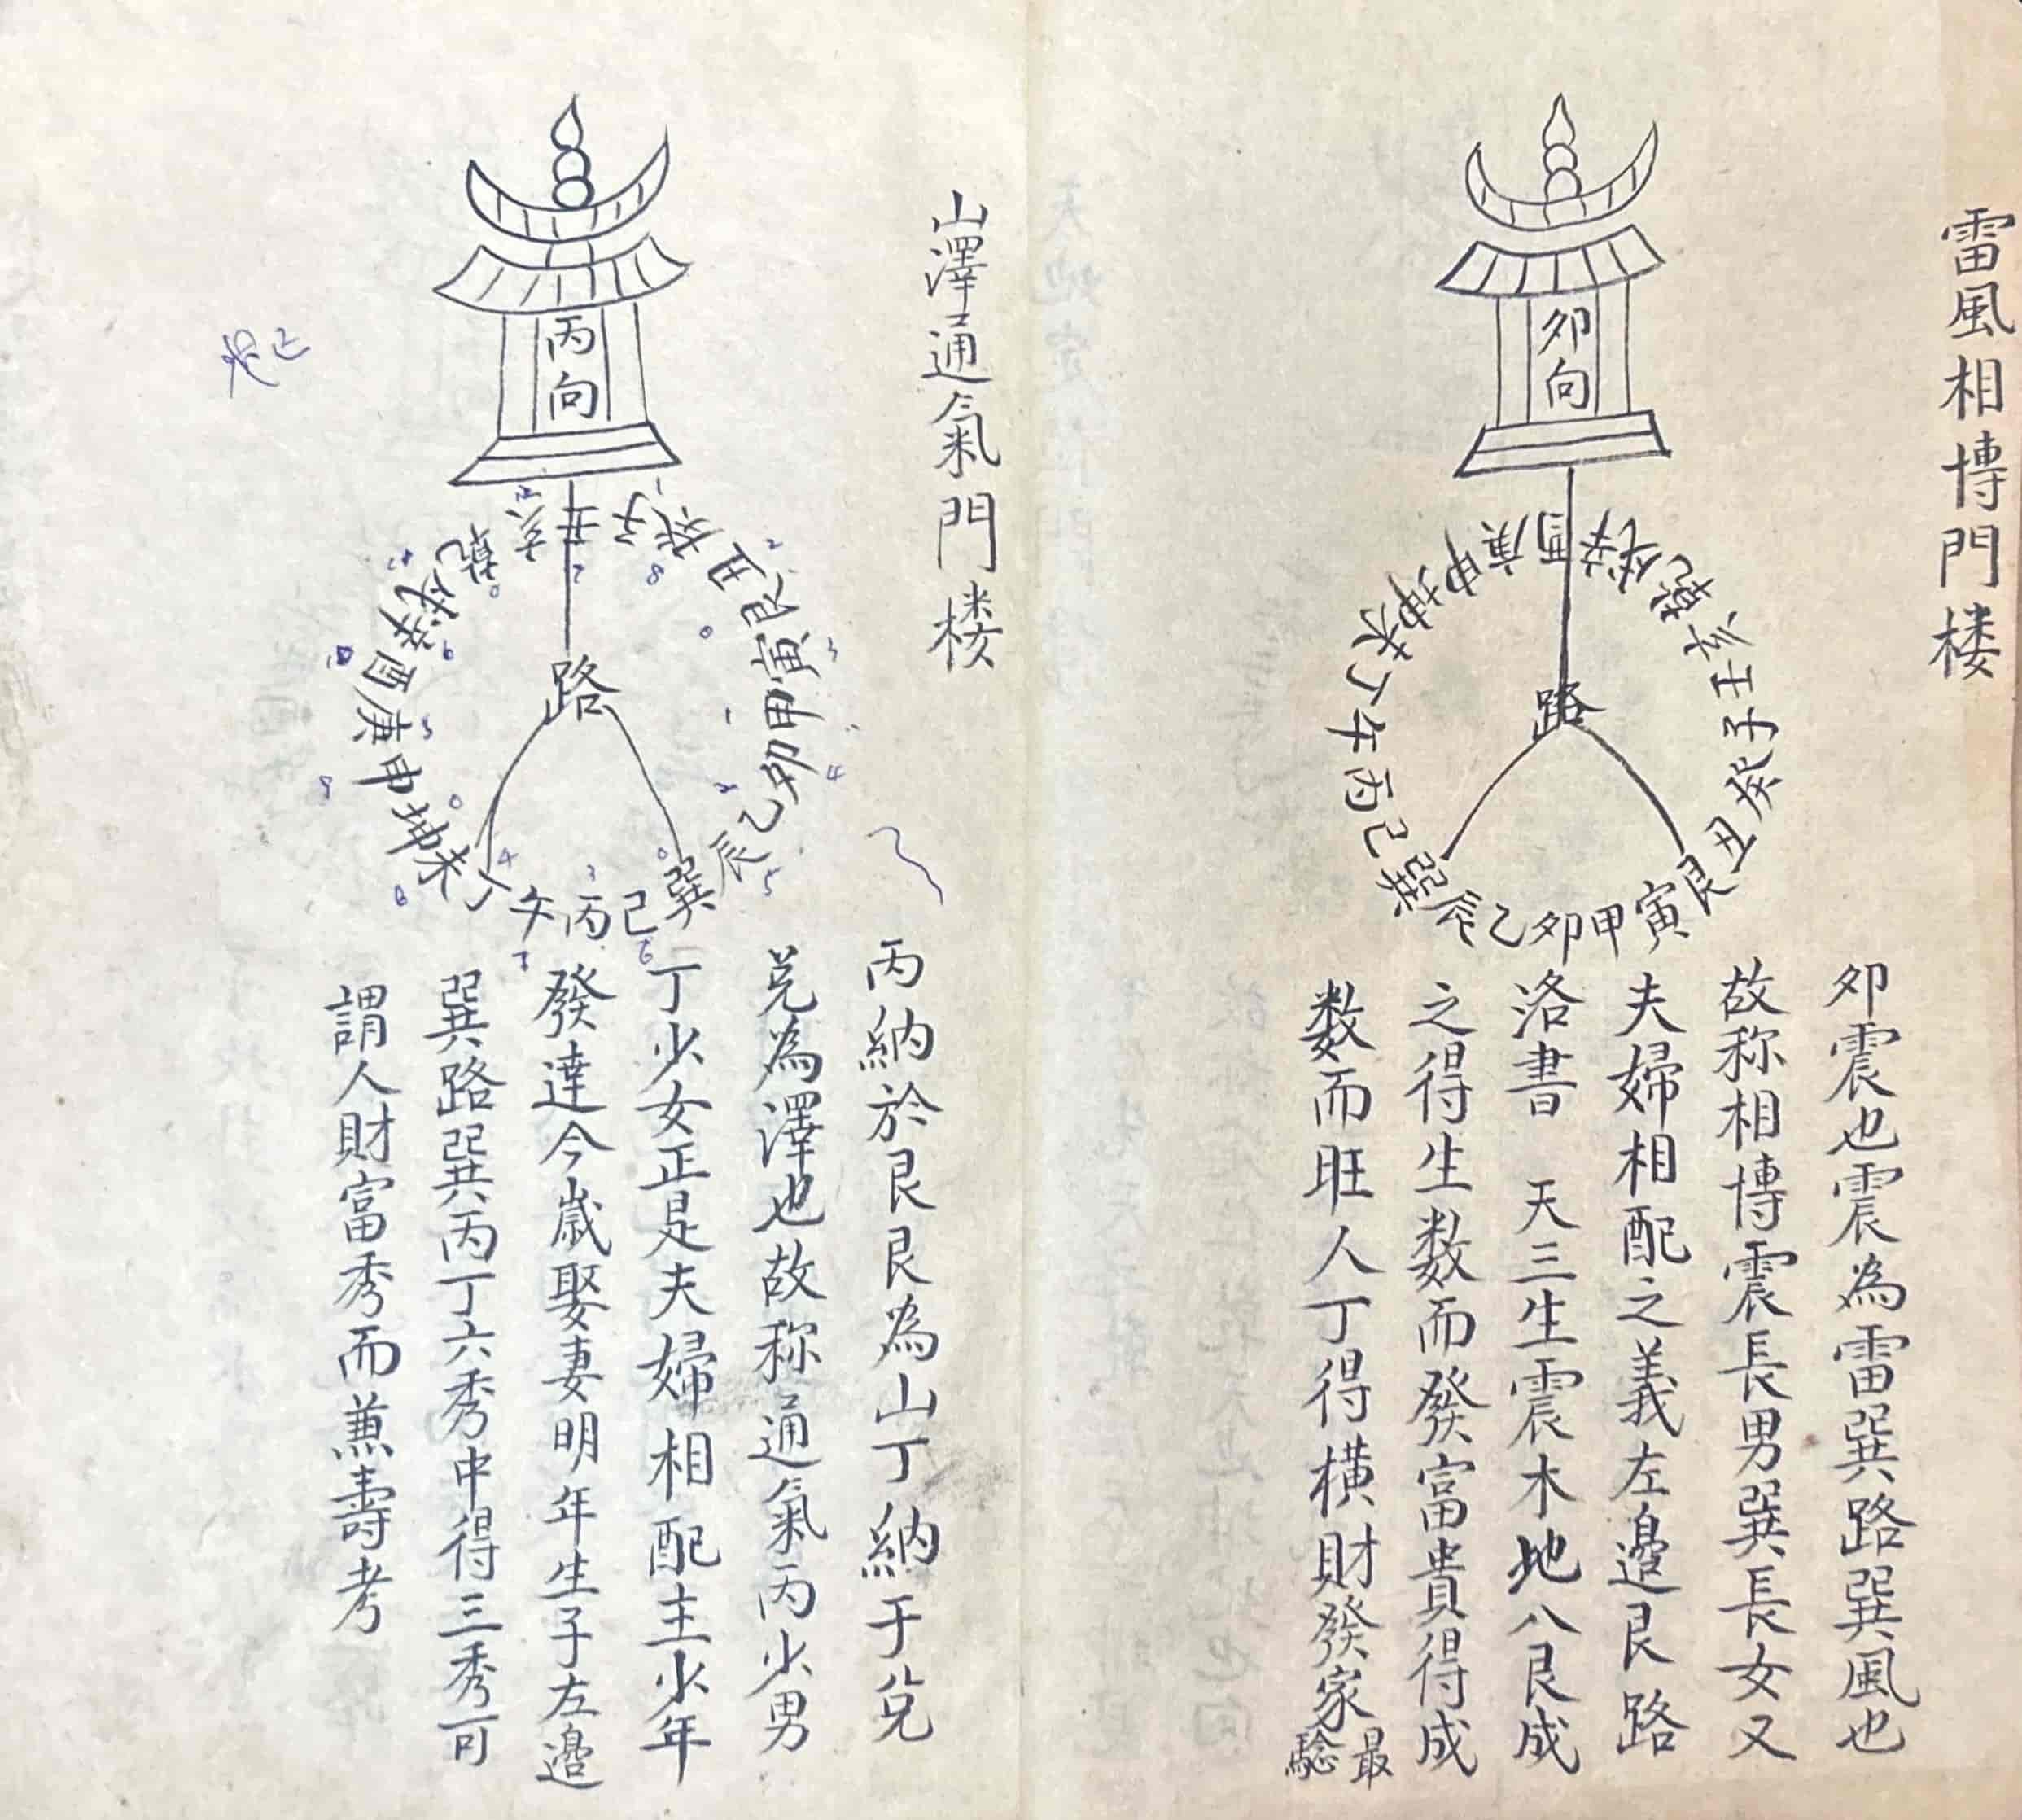 雷風相博門楼
卯向
路
卯甲寅艮丑癸子壬亥乾戌辛酉庚申坤未丁午丙巳巽辰乙
卯震也震為雷巽路巽風也
故称相博震長男巽長女又
夫婦相配之義左邉艮路
洛書　天三生震木地八艮成
之得生数而發富貴得成
数而旺人丁得横財發家最
驗
山澤通氣門楼
丙向
路
丙巳巽辰乙卯甲寅艮丑癸子壬亥乾戌辛酉庚申坤未丁午
丙納於艮艮為山丁納于兌
兌為澤也故称通氣丙少男
丁少女正是夫婦相配主少年
發達今歲娶妻明年生子左邉
巽路巽丙丁六秀中得三秀可
謂人財富秀而兼壽考